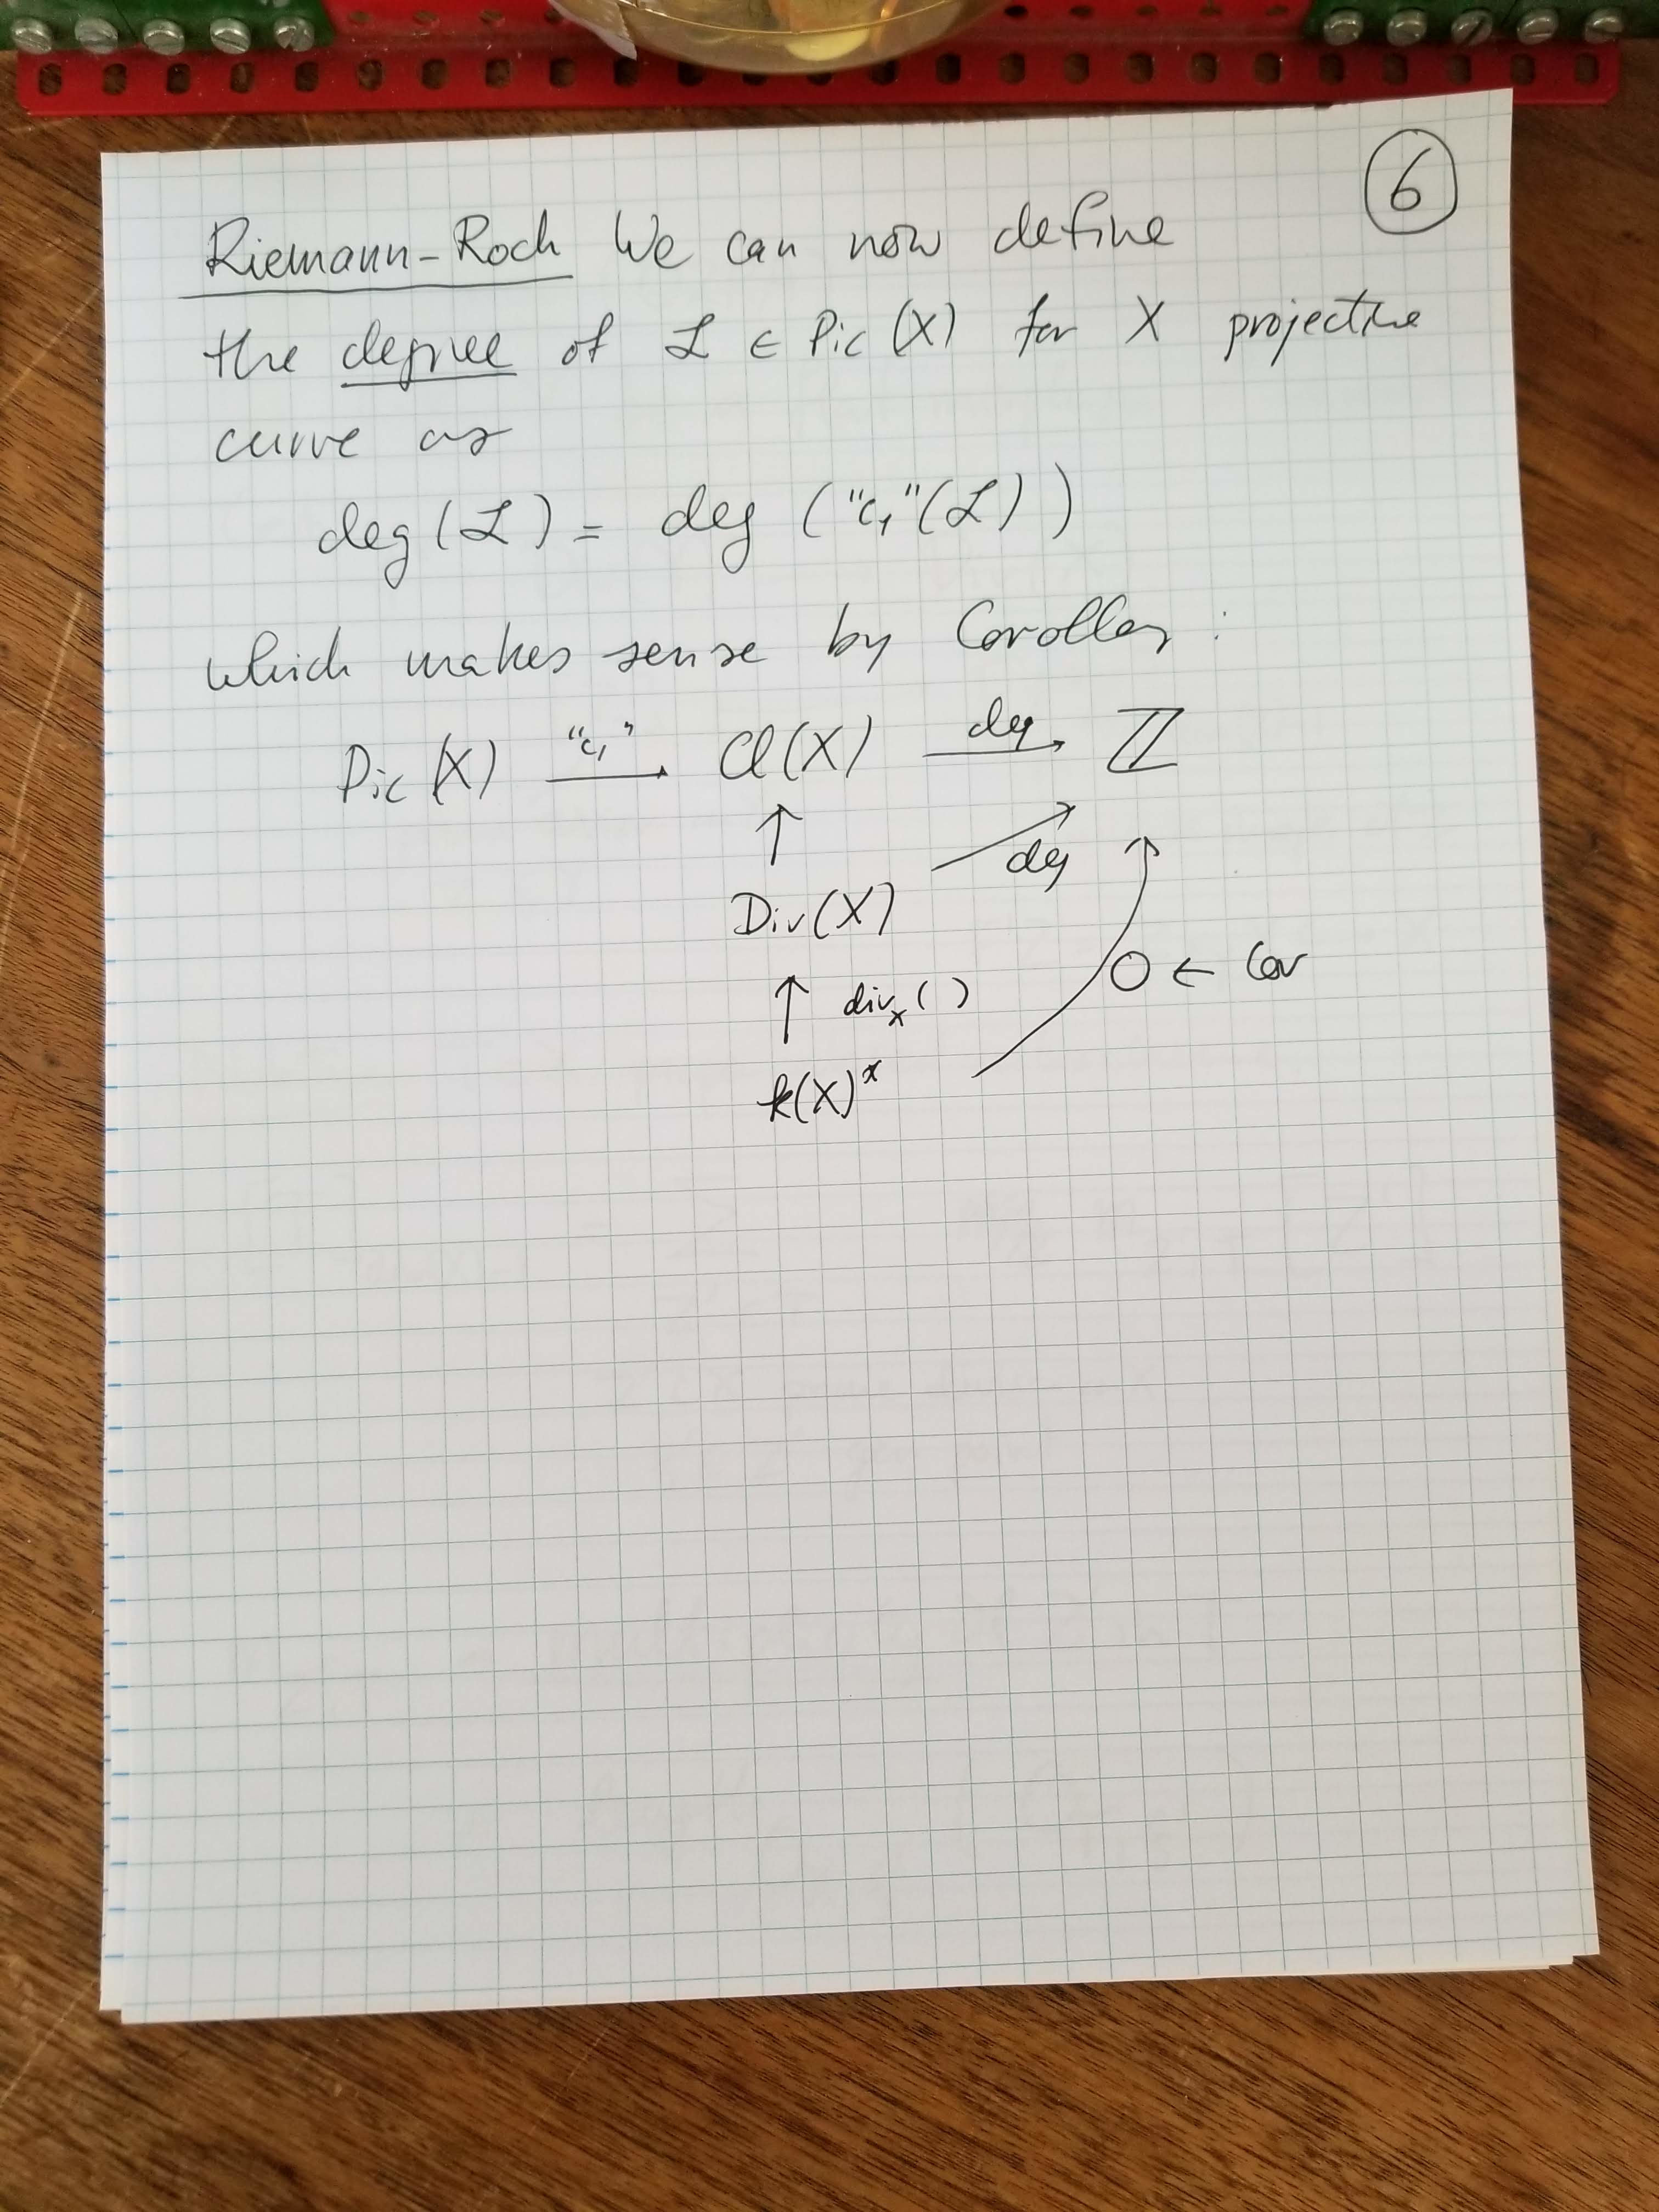 6
Riemann-Roch We can now define
the degree of ℒ ∈ Pic(X) for X projective
curve as
deg(ℒ) = deg("c₁"(ℒ))
which makes sense by Corollary :
Pic(X) "c₁" → Cl(X) deg → ℤ
↑ ↗ deg
Div(X)
0 ← Cor
↑ divₓ( )
k(X)ˣ